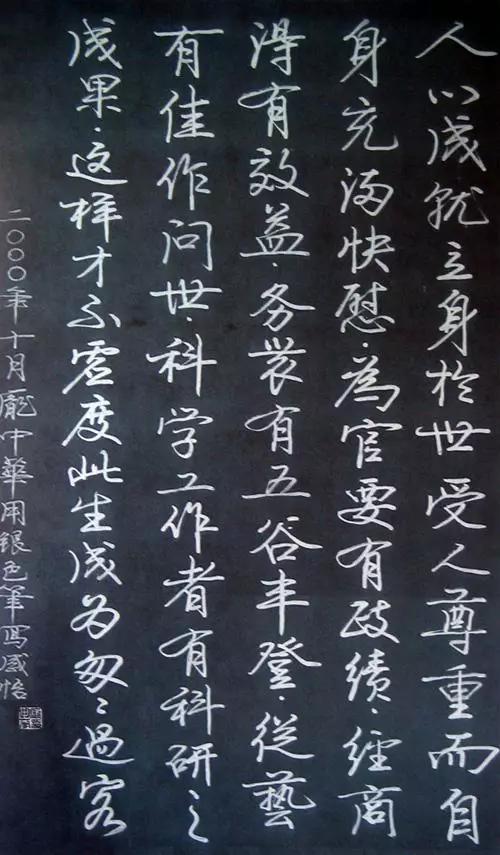 人以成就立身於世受人尊重而自
身充满快慰.為官要有政績.經商
得有效益.务農有五谷丰登.從藝
有佳作问世.科学工作者有科研之
成果.这样才不虚度此生成为匆々過客
二〇〇〇年十月龐中華用银色筆寫感悟